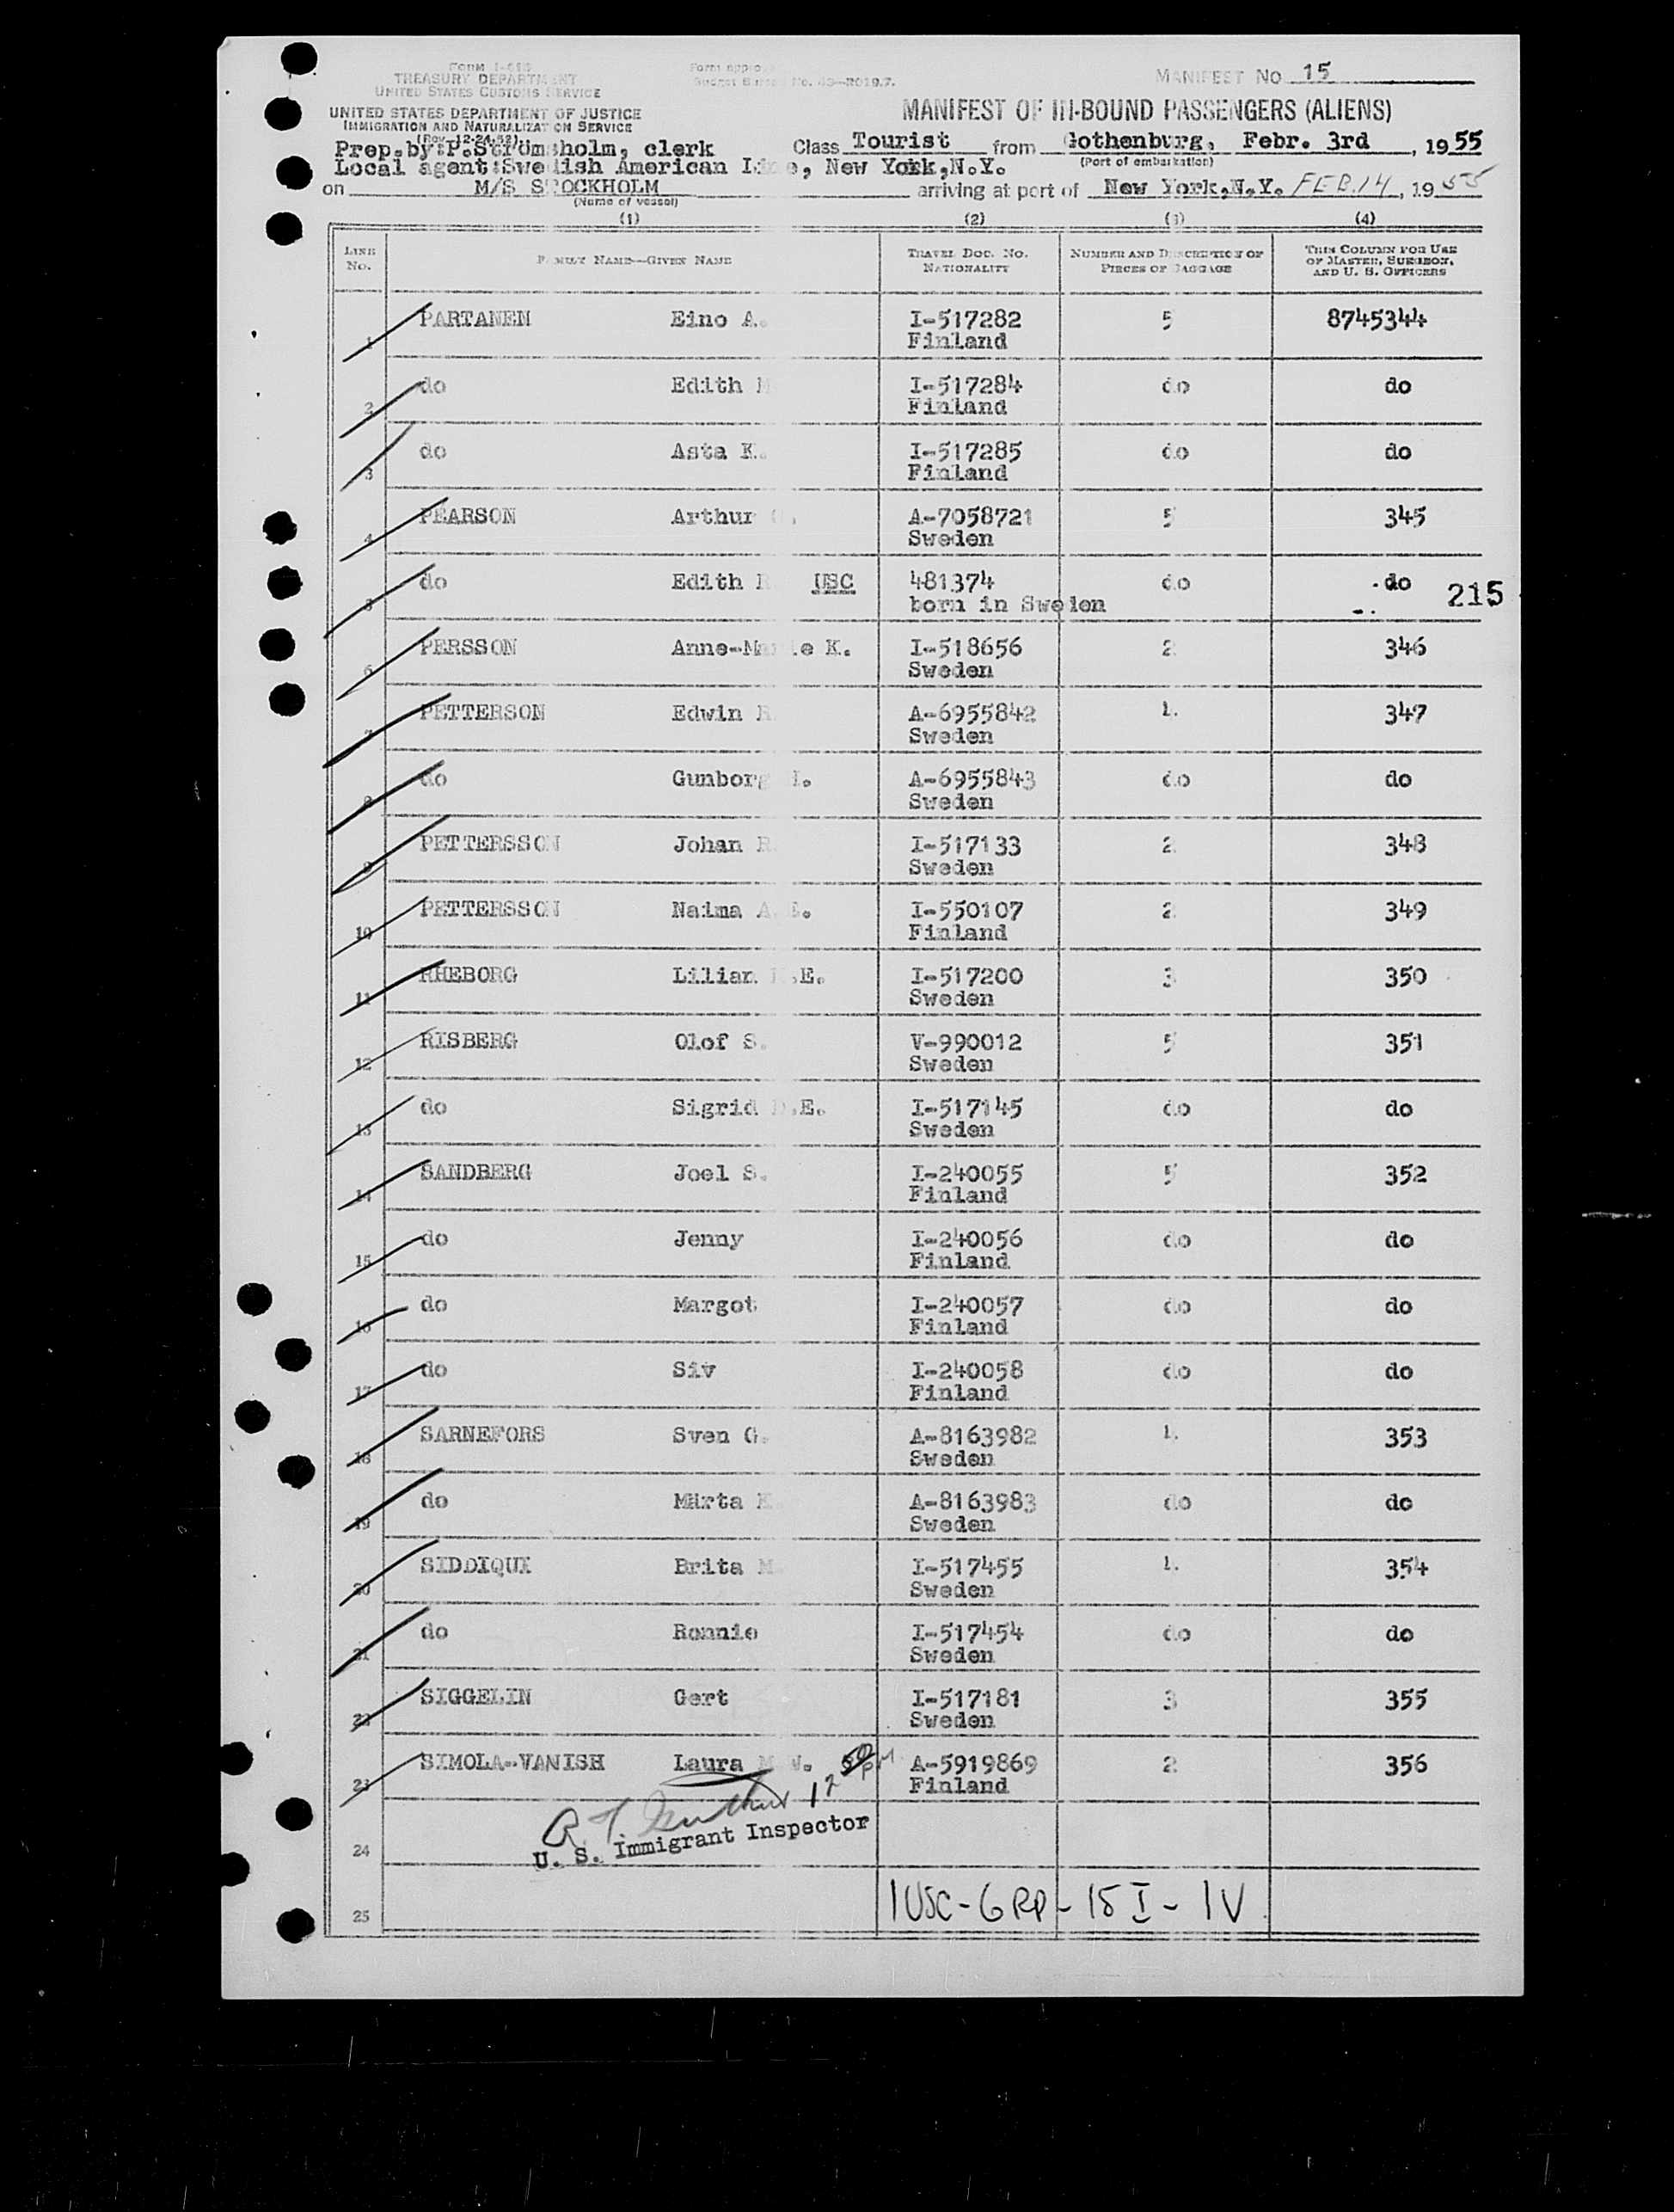 FORM I-418
TREASURY DEPARTMENT
UNITED STATES CUSTOMS SERVICE
Form approved
Budget Bureau No. 43-R019.7.
MANIFEST NO 15
UNITED STATES DEPARTMENT OF JUSTICE
IMMIGRATION AND NATURALIZATION SERVICE
(Rev. 12-24-52)
MANIFEST OF IN-BOUND PASSENGERS (ALIENS)
Prep.by:P.Strömsholm, clerk Class Tourist from Gothenburg, Febr. 3rd, 1955
(Port of embarkation)
Local agent:Swedish American Line, New York,N.Y.
on M/S STOCKHOLM arriving at port of New York,N.Y. FEB.14, 1955
(Name of vessel)
(1) (2) (3) (4)
LINE No. FAMILY NAME—GIVEN NAME TRAVEL DOC. NO. NATIONALITY NUMBER AND DESCRIPTION OF PIECES OF BAGGAGE THIS COLUMN FOR USE OF MASTER, SURGEON, AND U. S. OFFICERS
1 PARTANEN Eino A. I-517282 5 8745344
Finland
2 do Edith I-517284 do do
Finland
3 do Asta K. I-517285 do do
Finland
4 PEARSON Arthur A-7058721 5 345
Sweden
5 do Edith USC 481374 do do 215
born in Sweden
6 PERSSON Anne-Marie K. I-518656 2 346
Sweden
7 PETTERSON Edwin A-6955842 1. 347
Sweden
8 do Gunborg A-6955843 do do
Sweden
9 PETTERSSON Johan I-517133 2 348
Sweden
10 PETTERSSON Naima A. I-550107 2 349
Finland
11 RHEBORG Lilian .E. I-517200 3 350
Sweden
12 RISBERG Olof S. V-990012 5 351
Sweden
13 do Sigrid .E. I-517145 do do
Sweden
14 SANDBERG Joel S. I-240055 5 352
Finland
15 do Jenny I-240056 do do
Finland
16 do Margot I-240057 do do
Finland
17 do Siv I-240058 do do
Finland
18 SARNEFORS Sven G. A-8163982 1. 353
Sweden
19 do Märta A-8163983 do do
Sweden
20 SIDDIQUI Brita M I-517455 1. 354
Sweden
21 do Ronnie I-517454 do do
Sweden
22 SIGGELIN Gert I-517181 3 355
Sweden
23 SIMOLA-VANISH Laura M W. A-5919869 2 356
Finland
12 50 PM
24 U. S. Immigrant Inspector
25 1 USC - 6 RP - 15 I - 1 V